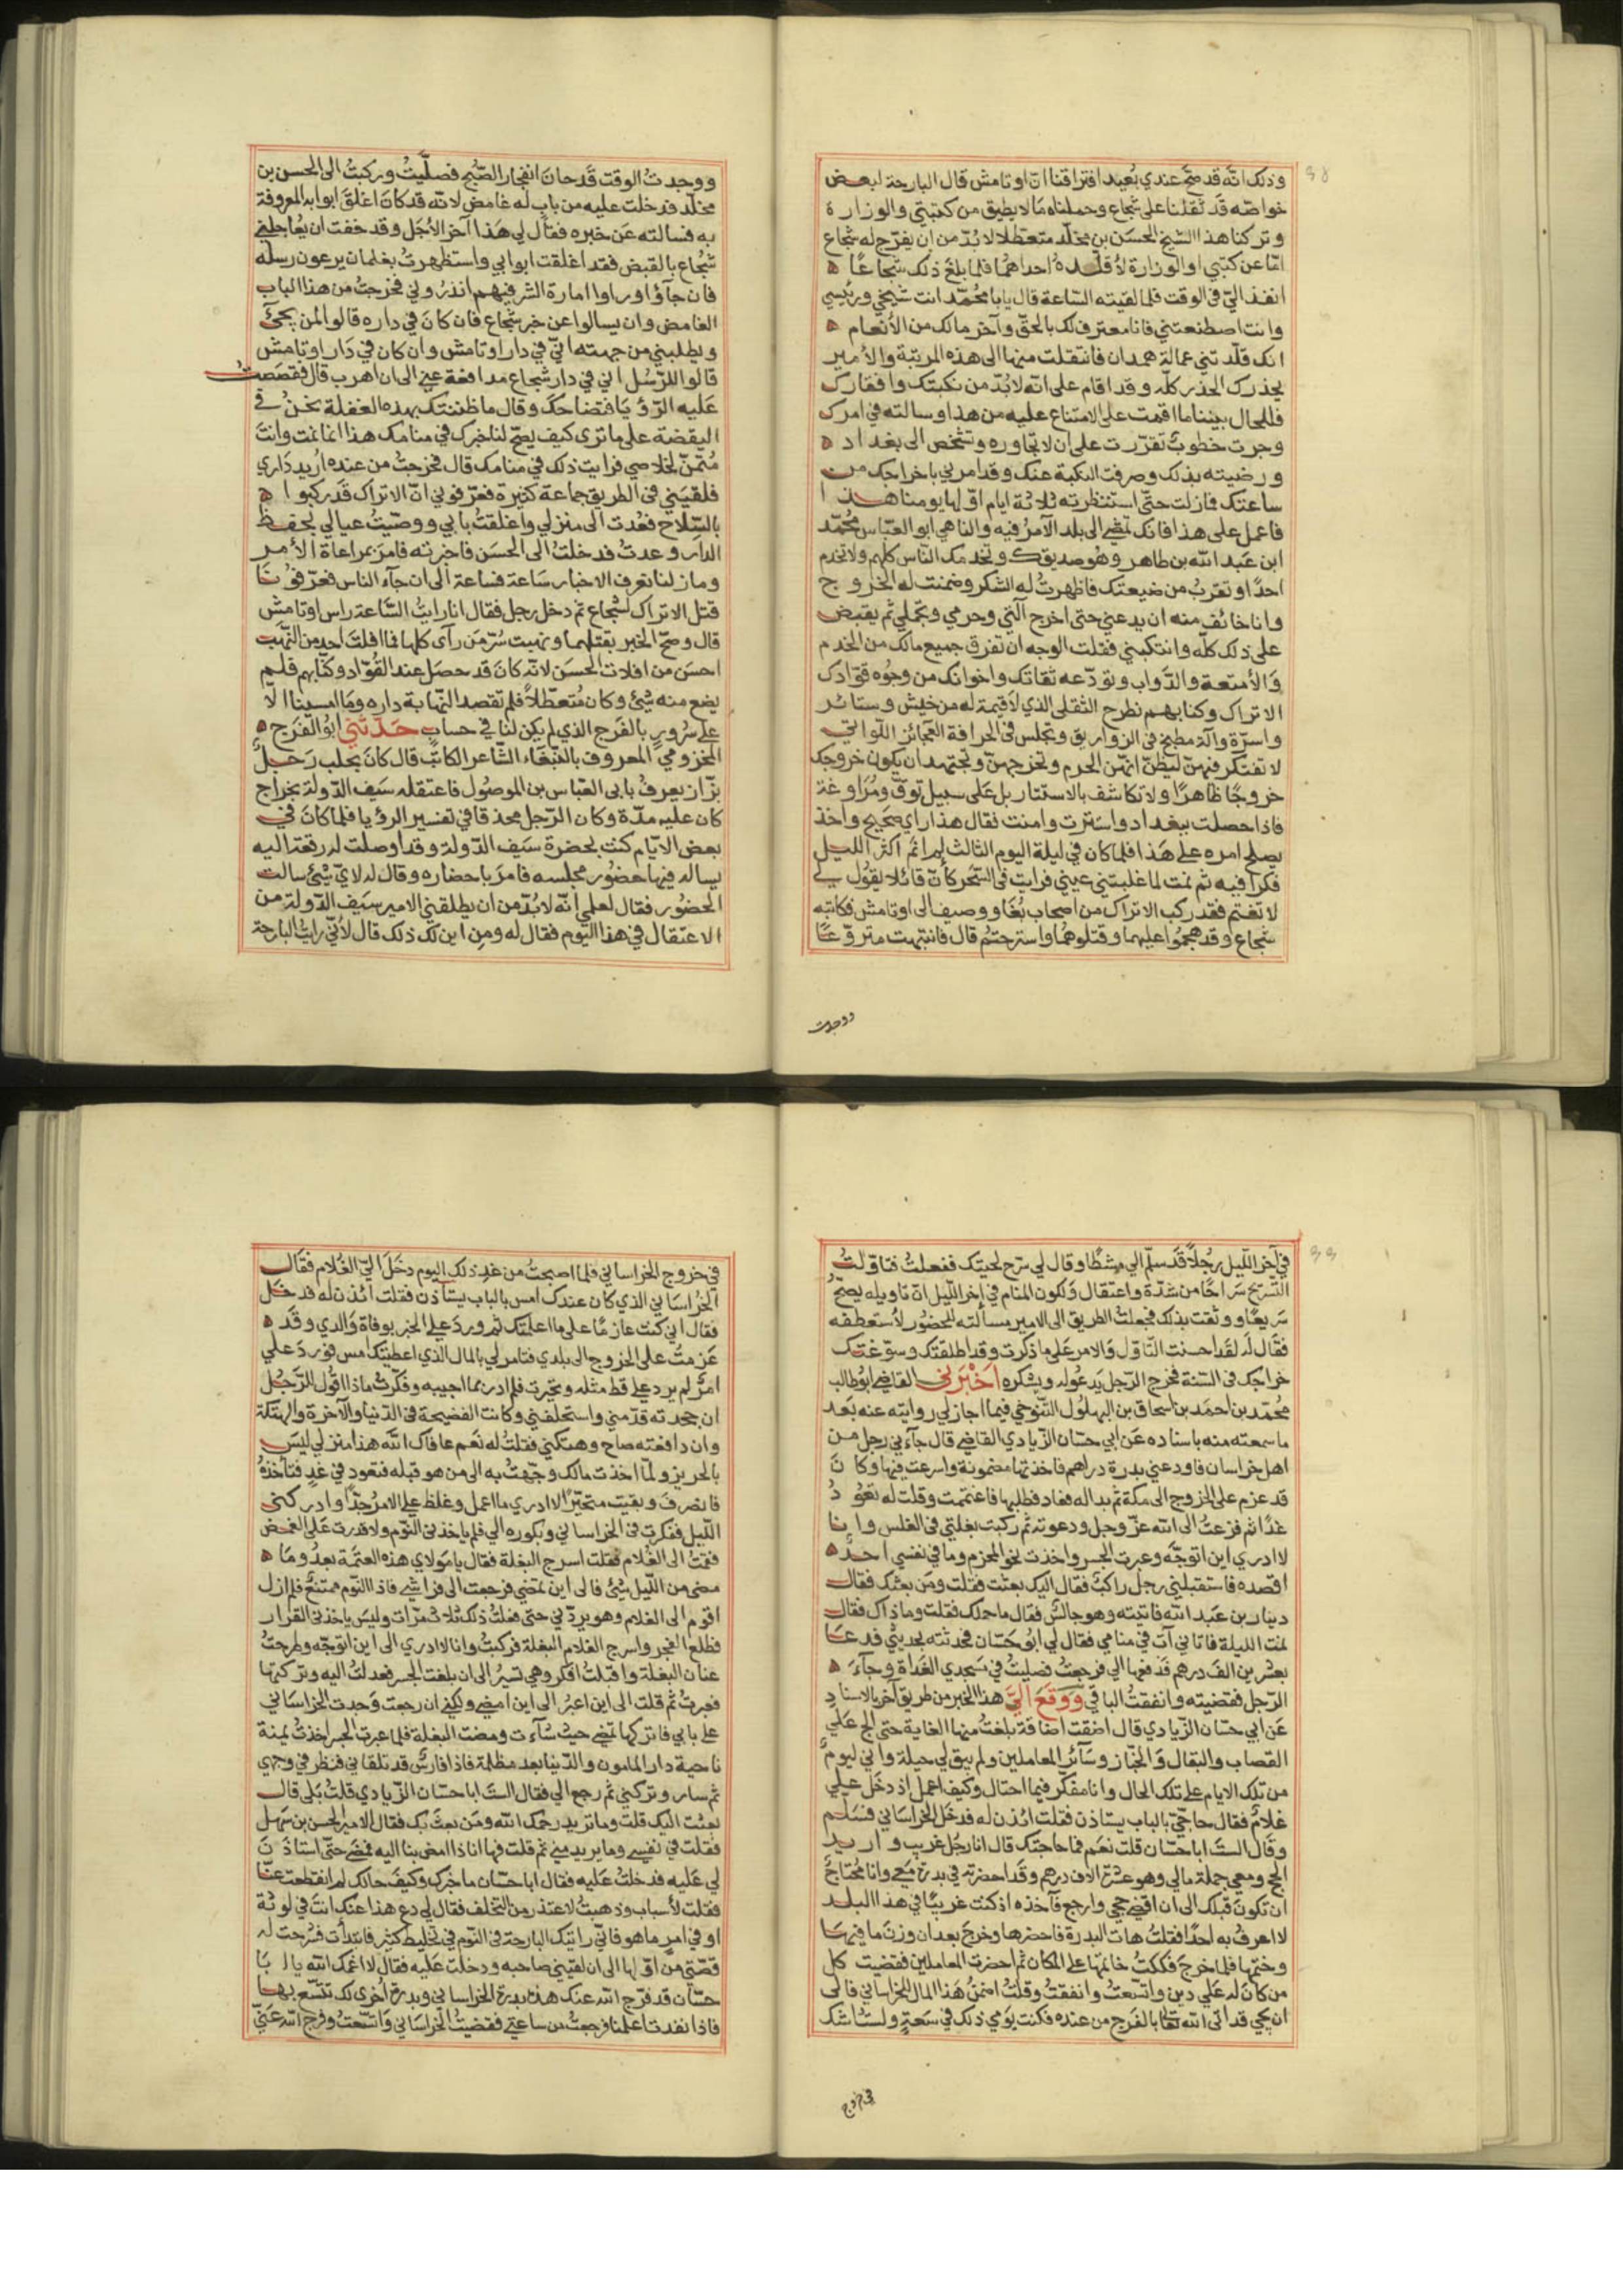 وذلك انّه قد صحّ عندي بُعيد افتراقنا انّ اوتامش قال البارحة لبعض
خواصّه قد ثقلنا على شجاع وحملناه ما لا يطيق من كتبتي والوزارة
وتركنا هذا الشيخ الحسَن بن مخلّد متعطلا لا بُدّ من ان يفرّج له شجاع
امّا عن كتبي او الوزارة لأقلّده احداهُما فلما بلغ ذلك شجاعًا
انفذ اليّ في الوقت فلما لقيته السّاعة قال يابا محُمّد انت شيخي ورئيسي
وانت اصطنعتني فانا معترف لك بالحقّ وآخر مالك من الأنعام
انك قلّدتني عمالة همدان فانتقلت منها الى هذه المرتبة والأمير
يحذرك الحذر كلّه وقد اقام على انّه لا بُدّ من نكبتك وافقارك
فلم يزل بيننا ما اقمت على الامتناع عليه من هذا وسالته في امرك
وجرت خطوبٌ تقرّرت على ان لا تجاوره وتشخص الى بغداد
ورضيته بذلك وصرفت النكبة عنك وقد امرني باخراجك من
ساعتك فمازلت حتّى استنظرته ثلاثة ايام اوّلها يومنا هذا
فاعمل على هذا فانك تمضي الى بلد الآمرُ فيه والناهي ابو العبّاس محُمّد
ابن عبَد الله بن طاهر وهُو صديقك وتخدمك النّاس كلهم ولا تخدم
احدًا وتقربُ من ضيعتك فاظهرتُ له الشكر وضمنت له الخروج
وانا خائف منه ان يدعني حتى اخرج آلتي وحرمي وتجملي ثم يقبض
على ذلك كلّه وانتكبني فقلت الوجه ان تفرق جميع مالك من الخدم
وَالأمتعة والدّواب وتودّعه ثقاتك واخوانك من وجُوه قوّادك
الاتراك وكتابهم نطرح الثقلى الذي لاَ قيمة له من خيش وستائر
واسرّة وآلة مطبخ في الزواريق وتجلس في الحرافة العجائز اللواتي
لا تفتكر فيهنّ ليظنّ انهّن الحرم وتخرجهنّ وتجتهد ان يكون خروجك
خروجًا ظاهرًا ولا تكاشف بالاستتار بل عَلى سبيل توقّ ومُرَاوغة
فاذا حصلت ببغداد واسَترت وامنت فقال هذا راي صَحيح واخذ
يصلح امره على هَذا فلما كان في ليلة اليوم الثالث لم انَم اكثر الليل
فكرا فيه ثم نمت لما غلبتني عيني فرايت في السَّحر كأنّ قائلا يقوُل لي
لا تغتم فقد ركب الاتراك من اصحاب بُغَا ووصيف الى اوتامش فكاتبه
شجاع وقد هجموُا عليهما وقتلوهُما واسترحتم قال فانتبهت متروّعًا
ووجدت
ووجدتُ الوقت قَد حانَ انفجار الصّبُح فصلّيتُ وركبتُ الى الحسن بن
مخلّد فدخلت عليه من باب له غامض لانّه قد كانَ اغلقَ ابوابه المعروفة
به فسالته عَن خبره فقال لي هَذا آخر الأجَل وقد خفت ان يُعاجلني
شجُاع بالقبض فقد اغلقت ابوابي واستظهرتُ بغلمان يرعون رسله
فان جآؤا ورأوا امارة الشر فيهم انذرُوني فخرجتُ من هذا الباب
الغامض وان يسالوا عن خبر شجاع فان كانَ في داره قالوا لمن يجئ
ويطلبني من جهته انّي في دار اوتامش وان كان في دَار اوتامش
قالوا للرّسُل اني في دار شجاع مدافعة عني الى ان اهرب قال فقصَصتُ
عَليه الرّؤيَا فتضاحكَ وقال ما ظننتك بهده الغفلة نحنُ في
اليقضة على ما ترى كيف يصحّ لنا خبرك في منامك هذا انما نمت وانتَ
مُتمّنّ لخلاصي فرايت ذلك في منامك قال فخرجتُ من عنده اُريد دَاري
فلقيَني في الطريق جماعة كثيرة فعرّفوني انّ الاتراك قَد ركبوا
بالسّلاح فعُدت الى منزلي واغلقتُ بابي ووصّيتُ عيالي بحفظ
الدار وعدتُ فدخلتُ الى الحسَن فاخبرته فامرَ بمراعاة الأمر
وما زلنا نعرف الاخبار سَاعة فساعة الى ان جآء الناس فعرّفونَا
قتل الاتراك لشجُاع ثم دخل رجل فقال انا رايتُ السَّاعة راس اوتامش
قال وصحّ الخبر بقتلهما ونهبت سُرّمَن رآى كلها فما افلتَ احد من النّهب
احسَن من افلات الحسَن لانّه كانَ قد حصَل عند القُوّاد وكتّابهم فلم
يضع منه شيئ وكان مُتعطّلاً فلم تقصد النهّابة داره وما امسينا الاّ
على سُرورٍ بالفَرج الذي لم يكن لنا في حساب حَدّثني ابوُ الفَرَج
المخزومي المعروف بالببّغَاء الشّاعر الكاتبّ قال كانَ بحلب رَجلٌ
بزّاز يعرفُ بابى العبّاس بن الموصُول فاعتقله سَيف الدّولة بخراج
كان عليه مدّة وكان الرّجل محذقا في تفسير الرؤيا فلما كانَ في
بعض الايّام كنت بحضرة سَيف الدّولة وقد اوصلت له رقعة اليه
يساله فيها حضُور مجلسه فامرَ باحضاره وقال له لايّ شيئ سالت
الحضُور فقال لعلمي انّه لا بُدّ من ان يطلقني الامير سَيف الدّولة من
الاعتقال في هذا اليَوم فقال له ومِن اين لك ذلك قال لأنّي رايتُ البارحة
في آخر اللّيل رجُلاً قَد سلّم الي مشطًا وقال لي سَرّح لحيتك ففعلتُ فتاوّلتُ
التّسريح سَراحًا من شدّة واعتقال وَلكون المنام في اخر اللّيل انّ تاويله يصحُّ
سَريعًا ووثقت بذلك فجعلتُ الطريق الى الامير مسالته للحضُور لأستعطفه
فقال لَه لقَد احسَنت التّاوّل وَالامر عَلى ما ذكرت وقد اطلقتك وسوّغتك
خراجك في السّنة فخرج الرّجل يَدعُو له ويشكره اخَبرَني القاضي ابوُ طالب
محُمّد بن احمَد بن اسحَاق بن البهلوُل التّنوخي فيما اجاز لي روايته عنه بَعد
ما سمعته منه باسناده عَن ابي حسّان الزّيادي القاضي قال جآءني رجل من
اهل خراسان فاودعني بدرة دراهم فاخذتها مضمونة واسرعت فيها وكانَ
قد عزم على الخروج الى مكة ثم بدا له فعاد فطلبها فاغتممت وقلت له تعوُدُ
غدًا ثم فزعتُ الى الله عزّ وجل ودعوته ثم ركبت بغلتي في الغلس وانا
لا ادري اين اتوجّه وعبرت الجسر واخذت نحو المخرّم وما في نفسي احدٌ
اقصده فاستقبلني رجل راكبٌ فقال اليك بعثت فقلت ومَن بعثك فقال
دينار بن عَبد الله فاتيته وهو جالسٌ فقال ما حالك فقلت وما ذاك فقال
نمت الليلة فاتاني آت في منامي فقال لي ابوُ حسّان فحدثته بحديثي فدعَا
بعشرين الف درهم فدفعها الي فرجعتُ فصليتُ في مسَجدي الغداة وجآءَ
الرّجل فقضيته وانفقتُ الباقي وَوَقَعَ اليَّ هذا الخبر من طريق آخر بالاسنادِ
عَن ابي حسّان الزّيادي قال اضقت اضاقة بلغتُ منها الغاية حتى الح عَلي
القصاب والبقال وَالخبّاز وسَآئر المعاملين ولم يبق لي حيلة واني ليومً
من تلك الايام على تلك الحال وانا مفكّر فيما احتال وكيف اعمل اذ دخَل علي
غلامٌ فقال حاجّيّ بالباب يستاذن فقلت ائذن له فدخَل الخراسَاني فسَلم
وقال الستَ ابا حسّان قلت نعَم فما حاجتك قال انا رجُل غريب واريد
الحج ومعي جملة مالي وهو عشرة الاف درهم وقد احضرته في بدرة معي وانا محتاجٌ
ان تكونَ قبلك الى ان اقضي حجي وارجع فآخذه اذ كنت غريبًا في هذا البلد
لا اعرفُ به احدًا فقلتُ هات البدرة فاحضرها وخرجَ بعد ان وزنَ ما فيهَا
وختمها فلما خرجَ فككتُ خاتمها على المكان ثم احضرت المعاملين فقضيت كل
من كانَ له عَلي دين واتّسعتُ وانفقتُ وقلتُ اضمنُ هَذا المال للخراساني فالى
ان يجي قد اتى الله تعالى بالفَرج من عنده فكنت يوَمي ذلك في سَعةٍ ولستُ اشك
في خروج
في خروج الخراساني فلما اصبحتُ من غدِ ذلك اليوم دخَلَ اليّ الغُلام فقَال
الخُراسَاني الذي كان عندك امس بالباب يستأذن فقلت ائذن له فدخَل
فقال اني كنت عازمًا على ما اعلمتك ثم وردَ علي الخبر بوفاة وَالدي وقَد
عَزمتُ على الخروج الى بلدي فتامر لي بالمال الذي اعطيتك امس فورَدَ عَلي
امرٌ لم يرد علي قط مثله وتحيّرت فلم ادر بما اجيبه وفكّرتُ ماذا اقوُل للرّجُل
ان جحدته قدّمني واستحلفني وكانت الفضيحة في الدّنيا والآخرة والهتكة
وان دافعته صاح وهتكني فقلتُ له نعم عافاك الله هذا منزلي ليسَ
بالحريز ولمّا اخذت مالك وجّهتُ به الى من هو قبله فتعود في غدٍ فتأخذهُ
فانصرفَ وبقيت متحيّرًا لا ادري ما اعمل وغلظ علي الامرُ جدًّا وادركني
اللّيل ففكرت في الخراساني وبكوره الي فلم ياخذني النّوم ولا قدرت عَلى الغمض
فقمتُ الى الغُلام فقلت اسرج البغلة فقال يا مَولاي هذه العتمَة بعدُ ومَا
مضى من اللّيل شيئ فالى اين تمضي فرجعت الى فراشي فاذا النّوم ممتنعٌ فلم ازل
اقوم الى الغلام وهو يردّني حتى فعلتُ ذلك ثلاث مرّات وليسَ ياخذني القرار
فطلع الفجر واسرج الغلام البغلة فركبتُ وانا لا ادري الى اين اتوجّه وطرحتُ
عنان البغلة واقبلتُ افكر وهي تسيرُ الى ان بلغت الجسر فعدلتُ اليه وتركتها
فعبرتُ ثم قلت الى اين اعبرُ الى اين امضي ولكني ان رجعت وَجدت الخراسَاني
على بابي فاتركها تمضي حيثُ شآءت ومضت البغلة فلما عبرت الجسر اخذتُ يمنة
ناحية دار المامون والدّنيا بعد مظلمة فاذا فارسٌ قد تلقاني فنظر في وجهي
ثم سار وتركني ثم رجع الي فقال الستَ ابا حسّان الزّيادي قلتُ بَلى قال
بعثت اليك قلت وما تريد رحمك الله ومَن بعثَ بك فقال الامير الحسَن بن سَهل
فقلت في نفسي وما يريد مني ثم قلت فيها انا ذا امض بنا اليه فمضى حتّى استأذنَ
لي عَليه فدخلتُ عَليه فقال ابا حسّان ما خبرك وكيفَ حالك لم انقطعت عنّا
فقلت لأسباب وذهبتُ لاعتذر من التخلف فقال لي دع هذا عنك انتَ في لوثة
او في امرٍ ما هو فانّي رايتك البارحة في النّوم في تخليط كثير فابتدأت فشرحت له
قصّتي من اوّلها الى ان لقيني صاحبه ودخلت عَليه فقال لا اغمّك الله يا ابَا
حسّان قد فرّج الله عنك هذه بدرة الخراساني وبدرة اُخرى لك تتسّع بها
فاذا نفدت اعلمنا فرجعتُ من ساعتي فقضيتُ الخُراسَاني وَاتّسعتُ وفرج الله عَنيّ